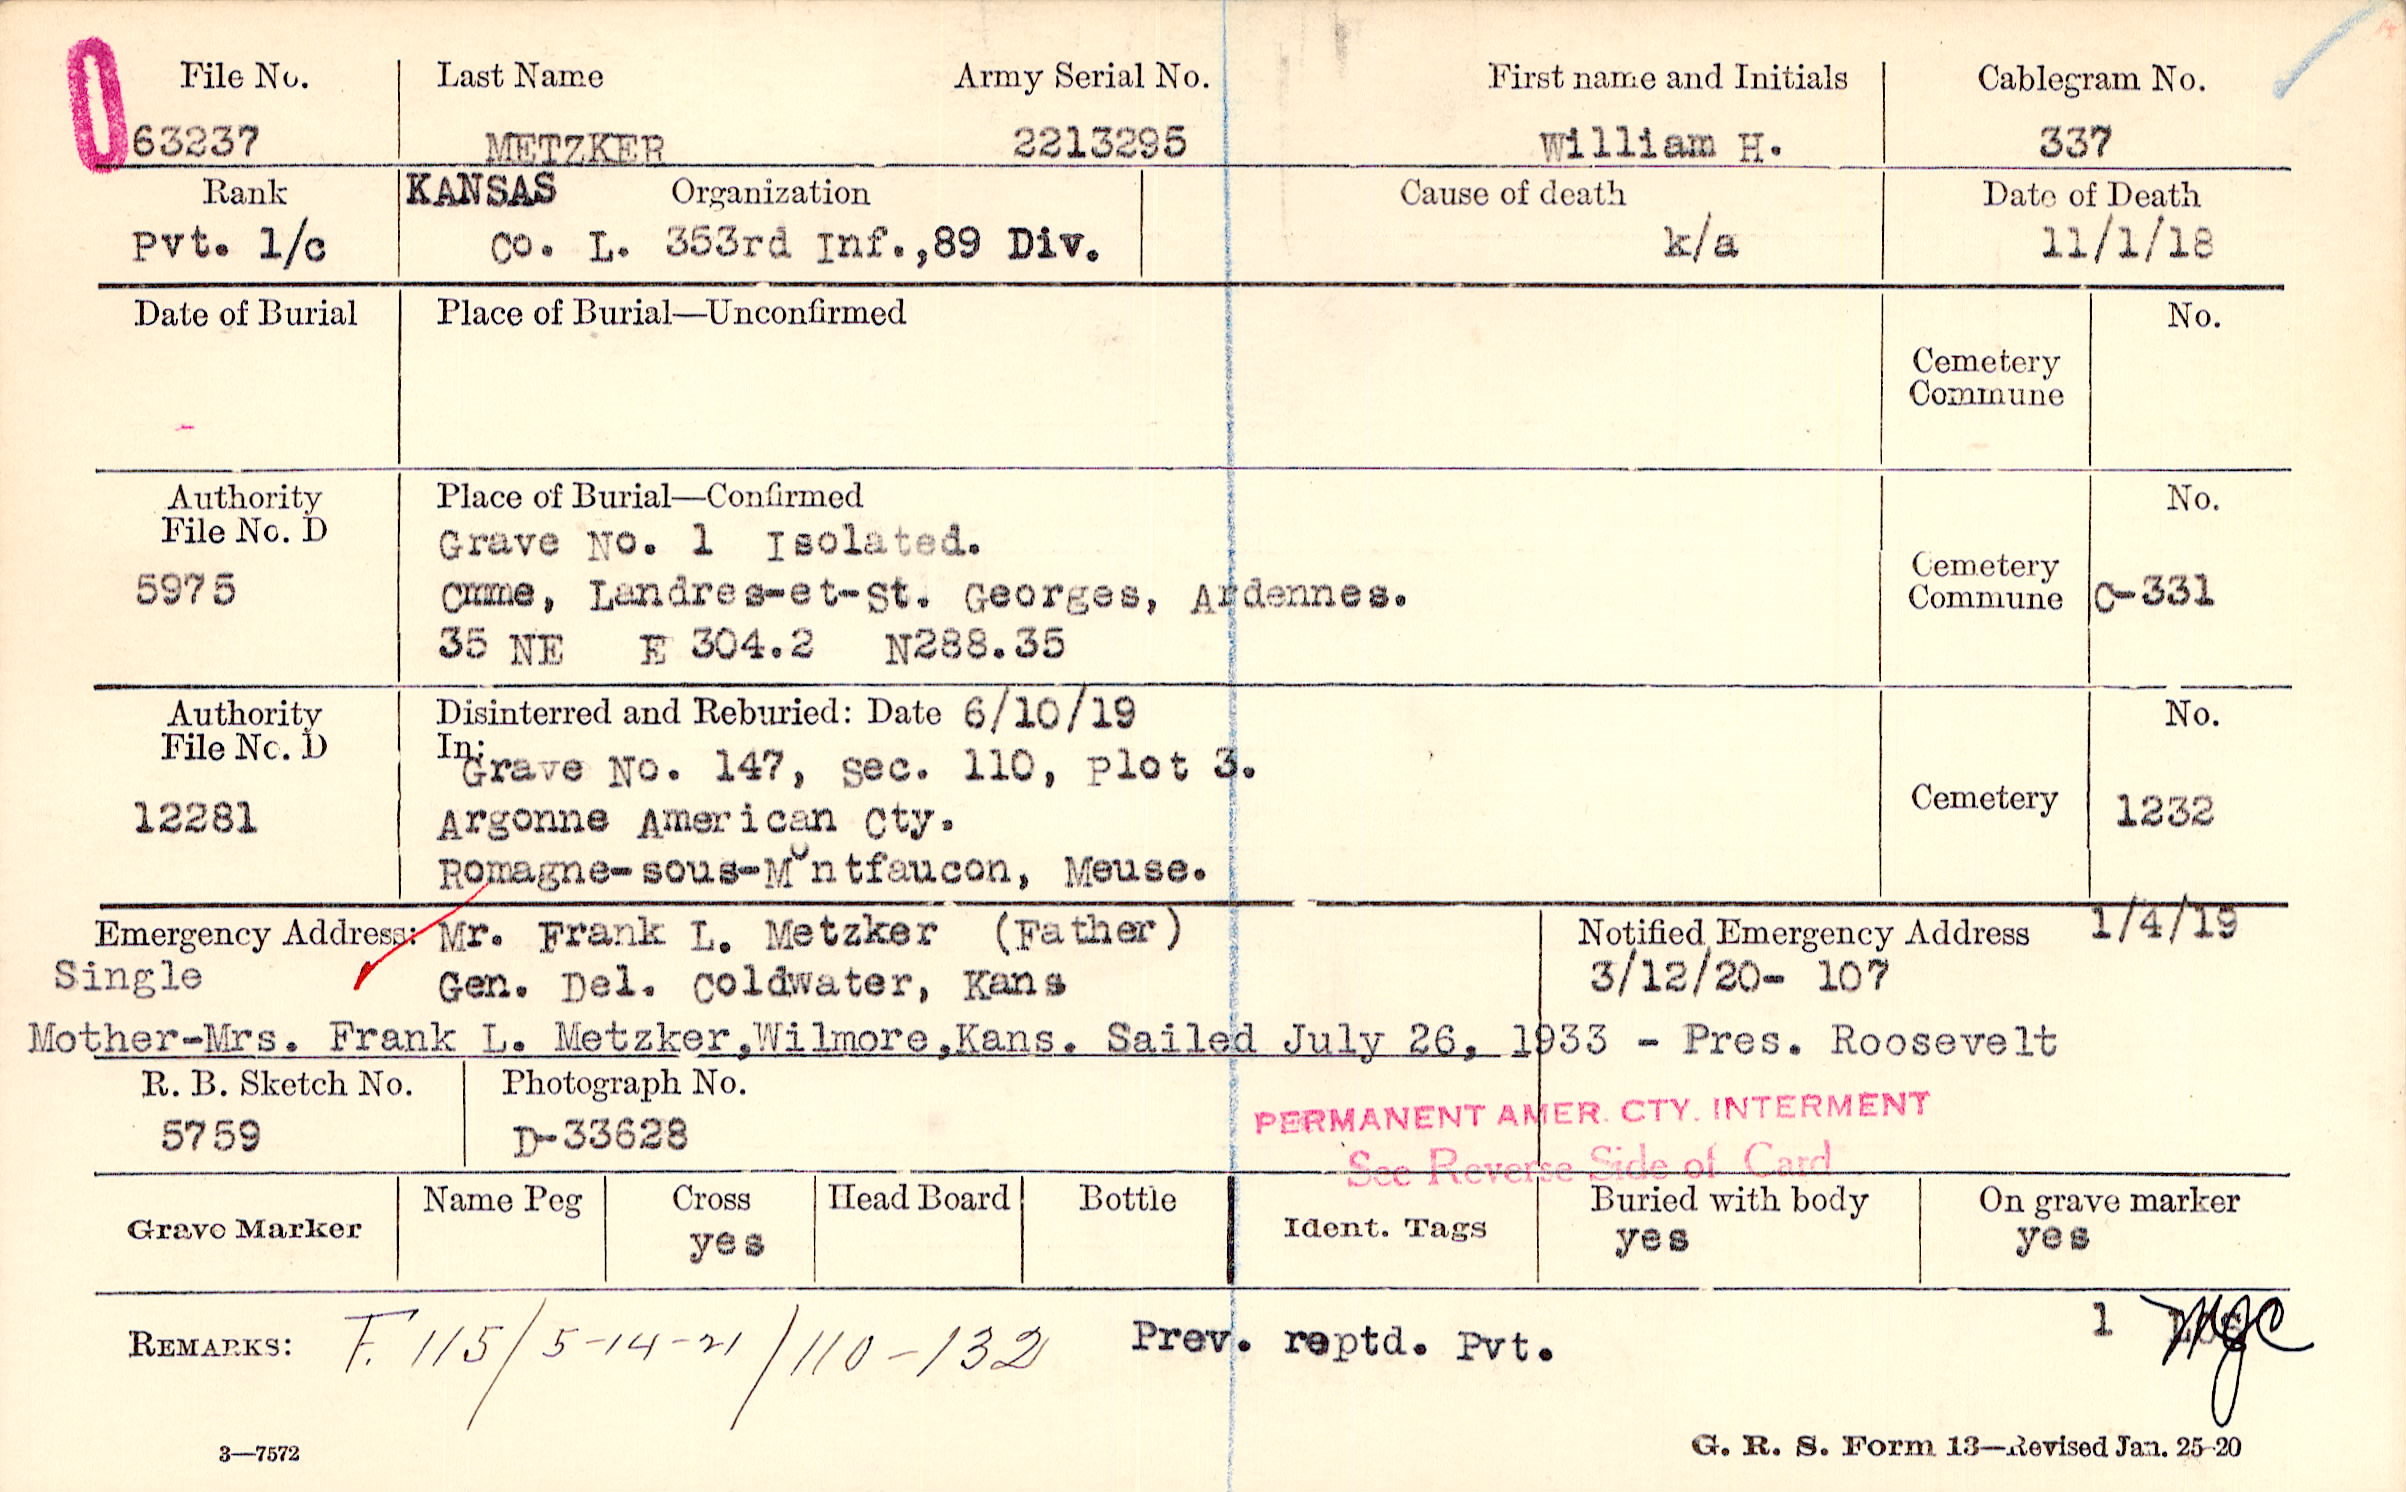 File No. Last Name Army Serial No. First name and Initials Cablegram No.
63237 METZKER 2213295 William H. 337
Rank KANSAS Organization Cause of death Date of Death
Pvt. 1/c Co. L. 353rd Inf.,89 Div. k/a 11/1/18
Date of Burial Place of Burial—Unconfirmed No.
Cemetery
Commune
Authority Place of Burial—Confirmed No.
File No. D
Grave No. 1 Isolated.
5975 Cmme, Landres-et-St. Georges, Ardennes. Cemetery
Commune C-331
35 NE E 304.2 N288.35
Authority Disinterred and Reburied: Date 6/10/19 No.
File No. D In:
Grave No. 147, Sec. 110, Plot 3.
12281 Argonne American Cty. Cemetery 1232
Romagne-sous-Montfaucon, Meuse.
Emergency Address: Mr. Frank L. Metzker (Father) Notified Emergency Address 1/4/19
Single Gen. Del. Coldwater, Kans 3/12/20- 107
Mother-Mrs. Frank L. Metzker,Wilmore,Kans. Sailed July 26, 1933 - Pres. Roosevelt
R. B. Sketch No. Photograph No.
5759 D-33628
PERMANENT AMER. CTY. INTERMENT
See Reverse Side of Card
Grave Marker Name Peg Cross Head Board Bottle Ident. Tags Buried with body On grave marker
yes yes yes
REMARKS: F. 115/5-14-21/110-132 Prev. reptd. Pvt. 1
3—7572 G. R. S. Form 13—Revised Jan. 25-20